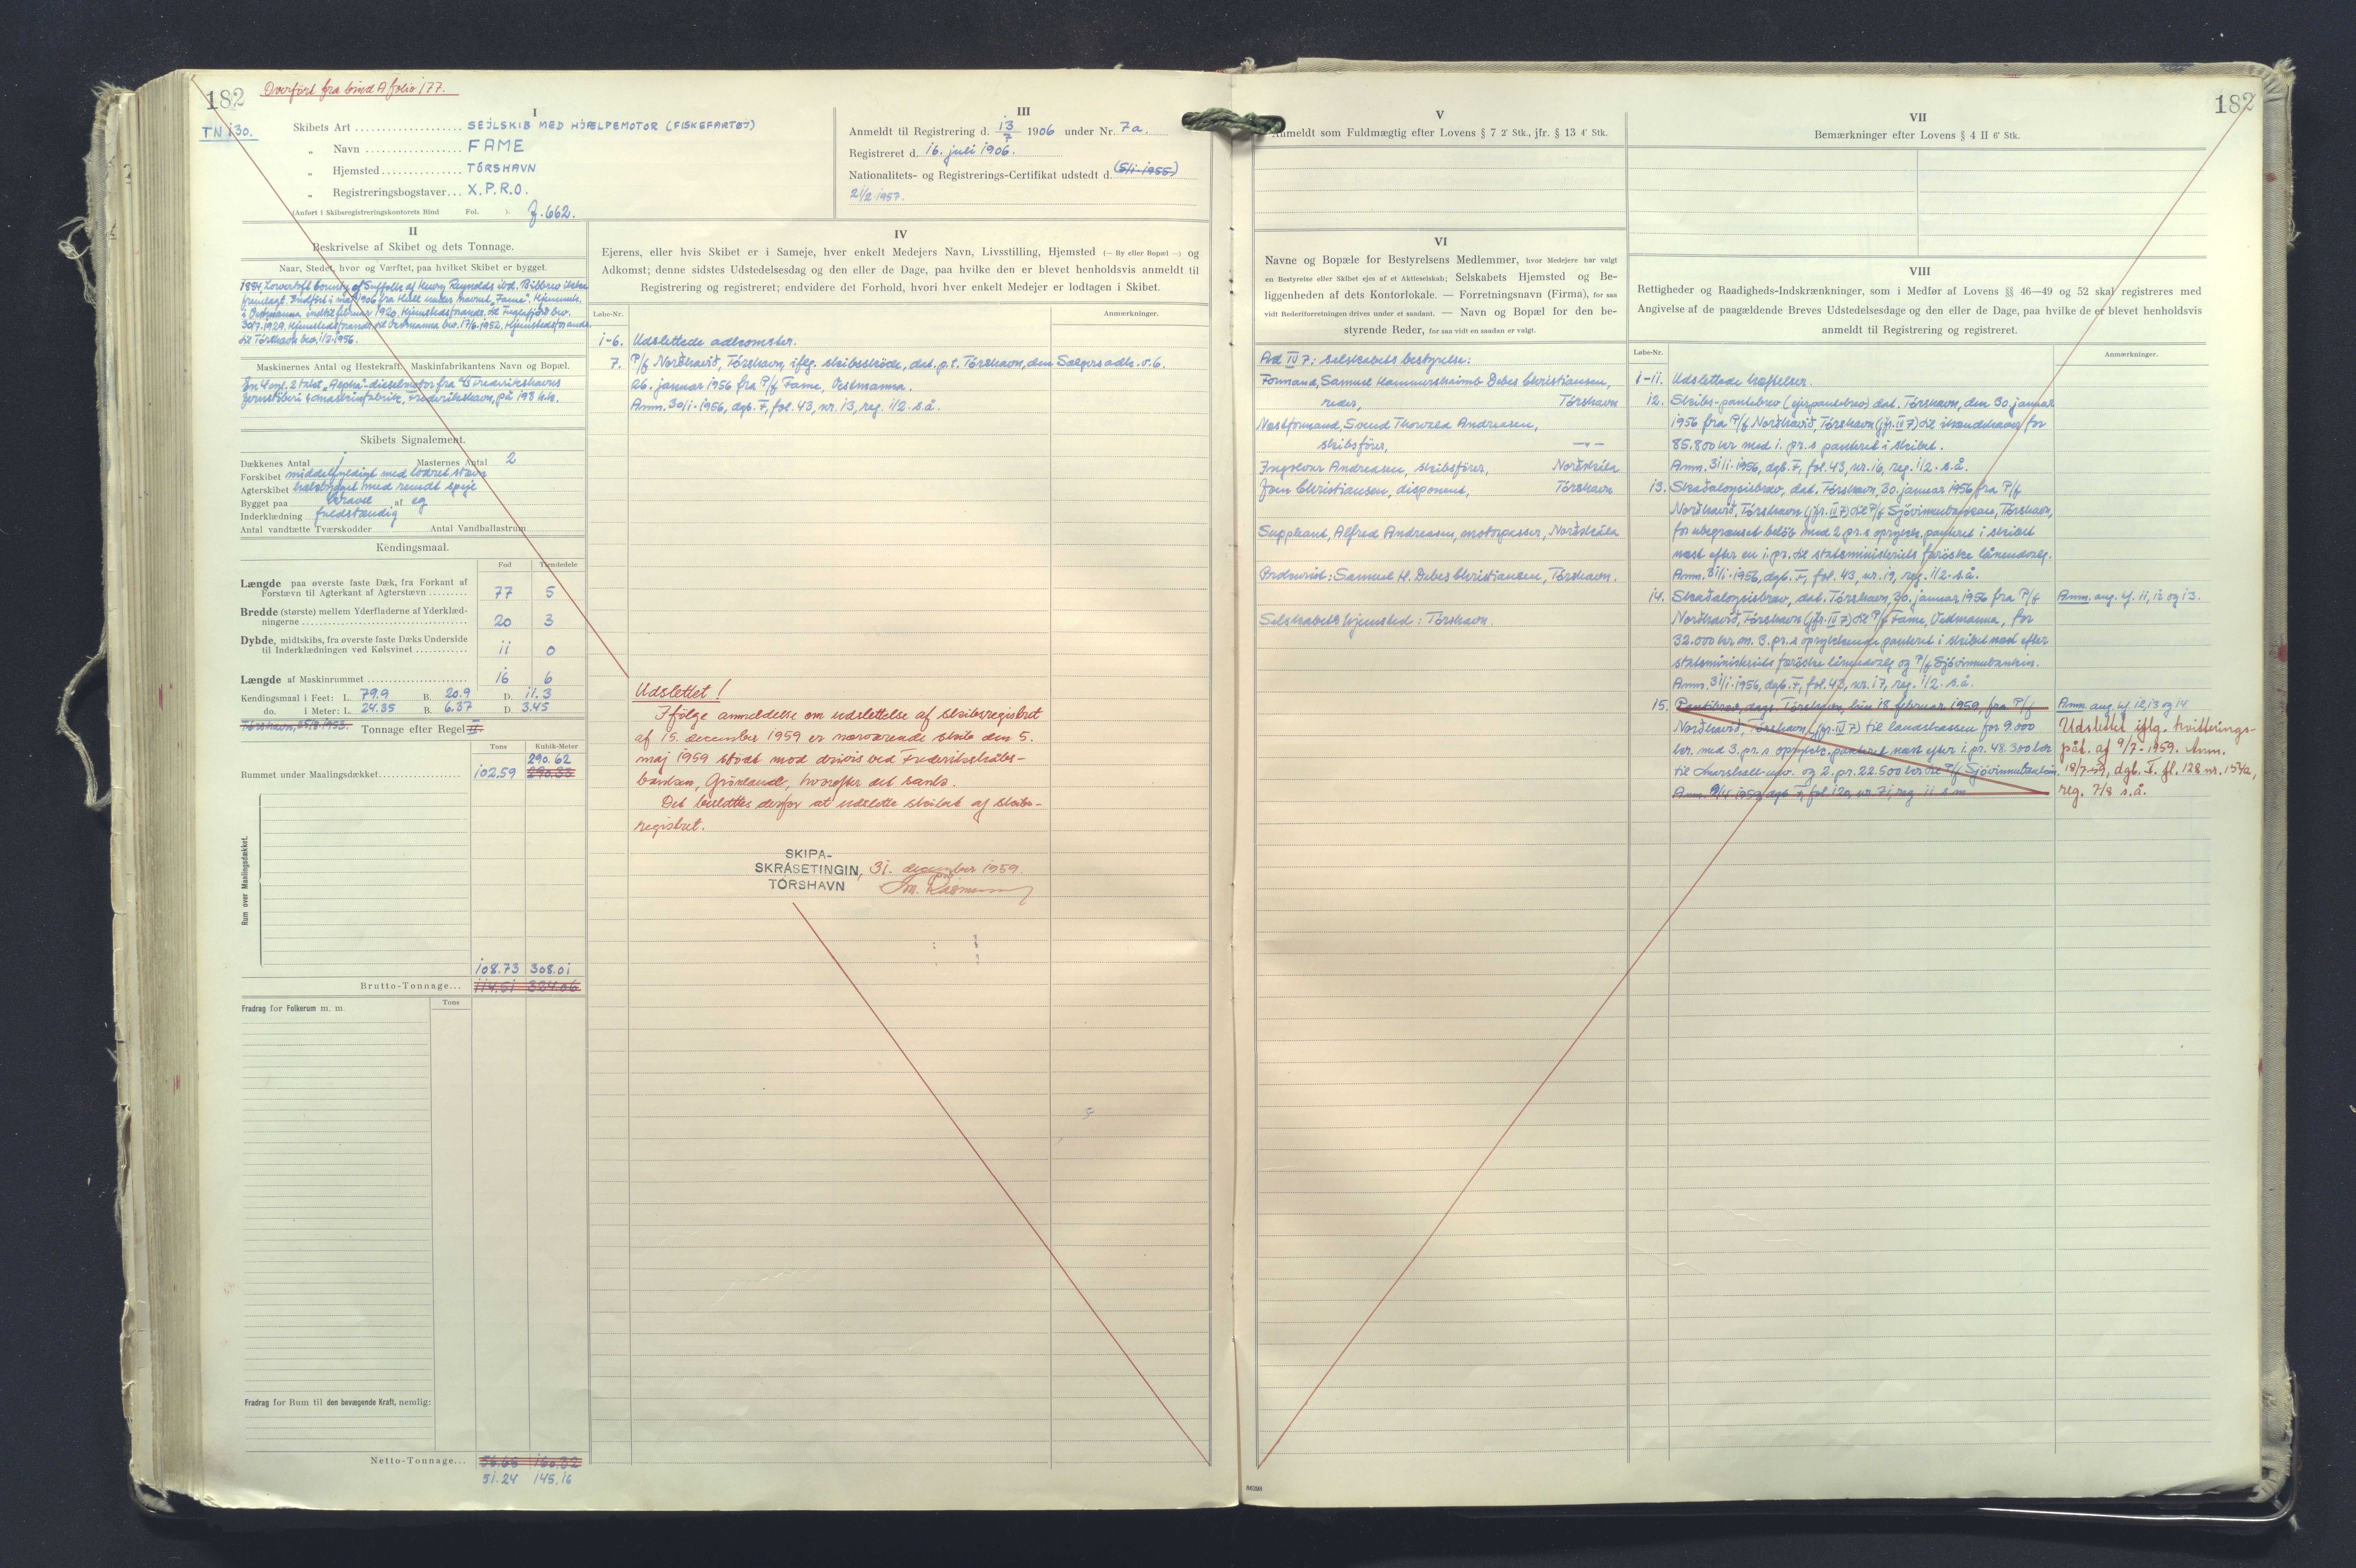 182
Overført fra bind A folio 177.
TN 130.
I
Skibets Art SEJLSKIB MED HJÆLPEMOTOR (FISKEFARTØJ)
„ Navn FAME
„ Hjemsted TÓRSHAVN
„ Registreringsbogstaver X.P.R.O.
(Anført i Skibsregistreringskontorets Bind Fol. ). J. 662.
III
Anmeldt til Registrering d. 13/7 1906 under Nr. 7a.
Registreret d. 16. juli 1906.
Nationalitets- og Registrerings-Certifikat udstedt d. (5/1-1955)
21/2 1957.
II
Beskrivelse af Skibet og dets Tonnage.
Naar, Stedet, hvor og Værftet, paa hvilket Skibet er bygget.
1884, Lowestoft County of Suffolk af Henry Reynolds ibd. Bilbrev ikke
fremlagt. Indført i maj 1906 fra Hull under navnet „Fame". Hjemmeh.
i Vestmanna indtil februar 1920. Hjemstedsforandr. til Fuglefjord bev.
30/7.1929. Hjemstedsforandr. til Vestmanna bev. 17/6-1952. Hjemstedsforandr.
til Tórshavn bev. 1/2-1956.
Maskinernes Antal og Hestekraft. Maskinfabrikantens Navn og Bopæl.
En 4 cyl. 2 takt „Alpha"-dieselmotor fra A/S Frederikshavns
Jernstøberi & Maskinfabrik, Frederikshavn, på 198 h.k.
Skibets Signalement.
Dækkenes Antal 1 Masternes Antal 2
Forskibet middelfyldigt med lodret stævn
Agterskibet hækbygget med rundt spejl
Bygget paa kravel af eg
Inderklædning fuldstændig
Antal vandtætte Tværskodder Antal Vandballastrum
Kendingsmaal.
Fod Tiendedele
Længde paa øverste faste Dæk, fra Forkant af
Forstævn til Agterkant af Agterstævn 77 5
Bredde (største) mellem Yderfladerne af Yderklæd-
ningerne 20 3
Dybde, midtskibs, fra øverste faste Dæks Underside
til Inderklædningen ved Kølsvinet 11 0
Længde af Maskinrummet 16 6
Kendingsmaal i Feet: L. 79.9 B. 20.9 D. 11.3
do. i Meter: L. 24.35 B. 6.37 D. 3.45
Tórshavn, 25/9.1953. Tonnage efter Regel II.
Tons Kubik-Meter
290.62
Rummet under Maalingsdækket 102.59 290.33
Rum over Maalingsdækket.
108.73 308.01
Brutto-Tonnage... 114.51 324.06
Fradrag for Folkerum m. m. Tons
Fradrag for Rum til den bevægende Kraft, nemlig:
Netto-Tonnage... 56.66 160.32
51.24 145.16
IV
Ejerens, eller hvis Skibet er i Sameje, hver enkelt Medejers Navn, Livsstilling, Hjemsted (— By eller Bopæl —) og
Adkomst; denne sidstes Udstedelsesdag og den eller de Dage, paa hvilke den er blevet henholdsvis anmeldt til
Registrering og registreret; endvidere det Forhold, hvori hver enkelt Medejer er lodtagen i Skibet.
Løbe-Nr. Anmærkninger.
1-6. Udslettede adkomster.
7. P/f Norðhavið, Tórshavn, iflg. skibsskøde, dat. p.t. Tórshavn, den Sælgers adk. o. 6.
26. januar 1956 fra P/f Fame, Vestmanna.
Anm. 30/1-1956, dgb. F, fol. 43, nr. 13, reg. 1/2 s.å.
Udslettet!
Ifølge anmeldelse om udslettelse af skibsregistret
af 15. december 1959 er nærværende skib den 5.
maj 1959 stødt mod drivis ved Frederikshåbs-
banken, Grønland, hvorefter det sank.
Det besluttes derfor at udslette skibet af skibs-
registret.
SKIPA-
SKRÁSETINGIN, 31. december 1959.
TÓRSHAVN
V
Anmeldt som Fuldmægtig efter Lovens § 7 2' Stk., jfr. § 13 4' Stk.
VI
Navne og Bopæle for Bestyrelsens Medlemmer, hvor Medejere har valgt
en Bestyrelse eller Skibet ejes af et Aktieselskab; Selskabets Hjemsted og Be-
liggenheden af dets Kontorlokale. — Forretningsnavn (Firma), for saa
vidt Rederiforretningen drives under et saadant. — Navn og Bopæl for den be-
styrende Reder, for saa vidt en saadan er valgt.
Ad IV 7: Selskabets bestyrelse:
Formand, Samuel Hammershaimb Debes Christiansen,
reder, Tórshavn
Næstformand, Svend Thorvald Andreasen,
skibsfører, —„—
Ingolvur Andreasen, skibsfører, Norðskála
Jens Christiansen, disponent, Tórshavn
Suppleant, Alfred Andreasen, motorpasser, Norðskála
Prokurist: Samuel H. Debes Christiansen, Tórshavn.
Selskabets hjemsted: Tórshavn.
182
VII
Bemærkninger efter Lovens § 4 II 6' Stk.
VIII
Rettigheder og Raadigheds-Indskrænkninger, som i Medfør af Lovens §§ 46—49 og 52 skal registreres med
Angivelse af de paagældende Breves Udstedelsesdage og den eller de Dage, paa hvilke de er blevet henholdsvis
anmeldt til Registrering og registreret.
Løbe-Nr. Anmærkninger.
1-11. Udslettede hæftelser.
12. Skibs-pantebrev (ejerpantebrev) dat. Tórshavn, den 30. januar
1956 fra P/f Norðhavið, Tórshavn (jfr. IV 7) til ihændehaver for
85.800 kr med 1. pr.s panteret i skibet.
Anm. 31/1-1956, dgb. F, fol. 43, nr. 16, reg. 1/2 s.å.
13. Skaðaloysisbrev, dat. Tórshavn, 30. januar 1956 fra P/f
Norðhavið, Tórshavn (jfr. IV 7) til P/f Sjóvinnubankin, Tórshavn,
for ubegrænset beløb med 2 pr.s oprykk. panteret i skibet
næst efter en 1. pr. til statsministeriets færøske låneudvalg.
Anm. 31/1-1956, dgb. F, fol. 43, nr. 19, reg. 1/2 s.å.
14. Skaðaloysisbrev, dat. Tórshavn, 30. januar 1956 fra P/f Anm. ang. hf. 11, 12 og 13.
Norðhavið, Tórshavn (jfr. IV 7) til P/f Fame, Vestmanna, for
32.000 kr m. 3. pr.s oprykkende panteret i skibet næst efter
statsministeriets færøske låneudvalg og P/f Sjóvinnubankin.
Anm. 31/1-1956, dgb. F, fol. 43, nr. 17, reg. 1/2 s.å.
15. Pantibrev, dags. Tórshavn, hin 18 februar 1959, fra P/f Anm. ang. hf 12, 13 og 14
Norðhavið, Tórshavn (jfr. IV 7) til landskassen for 9.000 Udslettet iflg. kvitterings-
kr. med 3. pr.s oprykk. panteret næst efter 1. pr. 48.300 kr påt. af 9/7-1959. Anm.
til Marshall-udv. og 2. pr. 22.500 kr til P/f Sjóvinnubankin. 18/7-59, dgb. F. fl. 128 nr. 154a,
Anm. 9/4 1959, dgb F, fol 120, nr 71, reg 11 s m reg. 7/8 s.å.